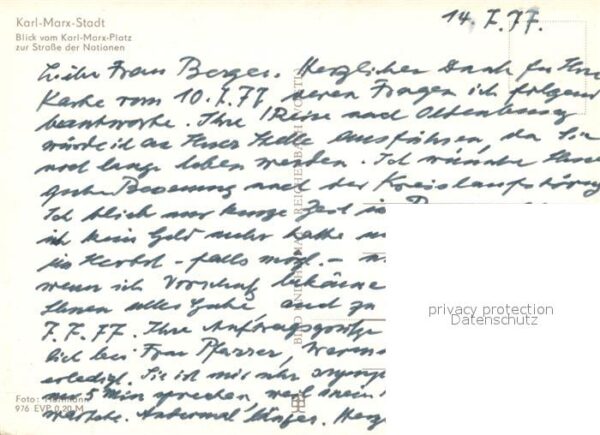 Karl-Marx-Stadt
Blick vom Karl-Marx-Platz
zur Straße der Nationen
14.7.77.
Liebe Frau Berger. Herzlichen Dank für Ihre
Karte vom 10.7.77 deren Fragen ich folgend
beantworte. Ihre Reise nach Oldenburg
würde ich an Ihrer Stelle ausführen, da Sie
noch lange haben werden. Ich wünsche Ihnen
gute Besserung nach der Kreislaufstörung
Ich blieb nur kurze Zeit in
ich kein Geld mehr hatte
im Herbst - falls mögl. -
wenn ich Vorschuß bekäme
Ihnen alles Gute und zu
7.7.77. Ihre Auftragsgrüße
lich bei Frau Pfarrer,
erledigt. Sie ist mir sehr
nur 5 Min sprechen, weil mein
wartete. Andermal länger. Herz
BILD UND HEIMAT REICHENBACH
privacy protection
Datenschutz
Foto:
976 EVP 0,20 M